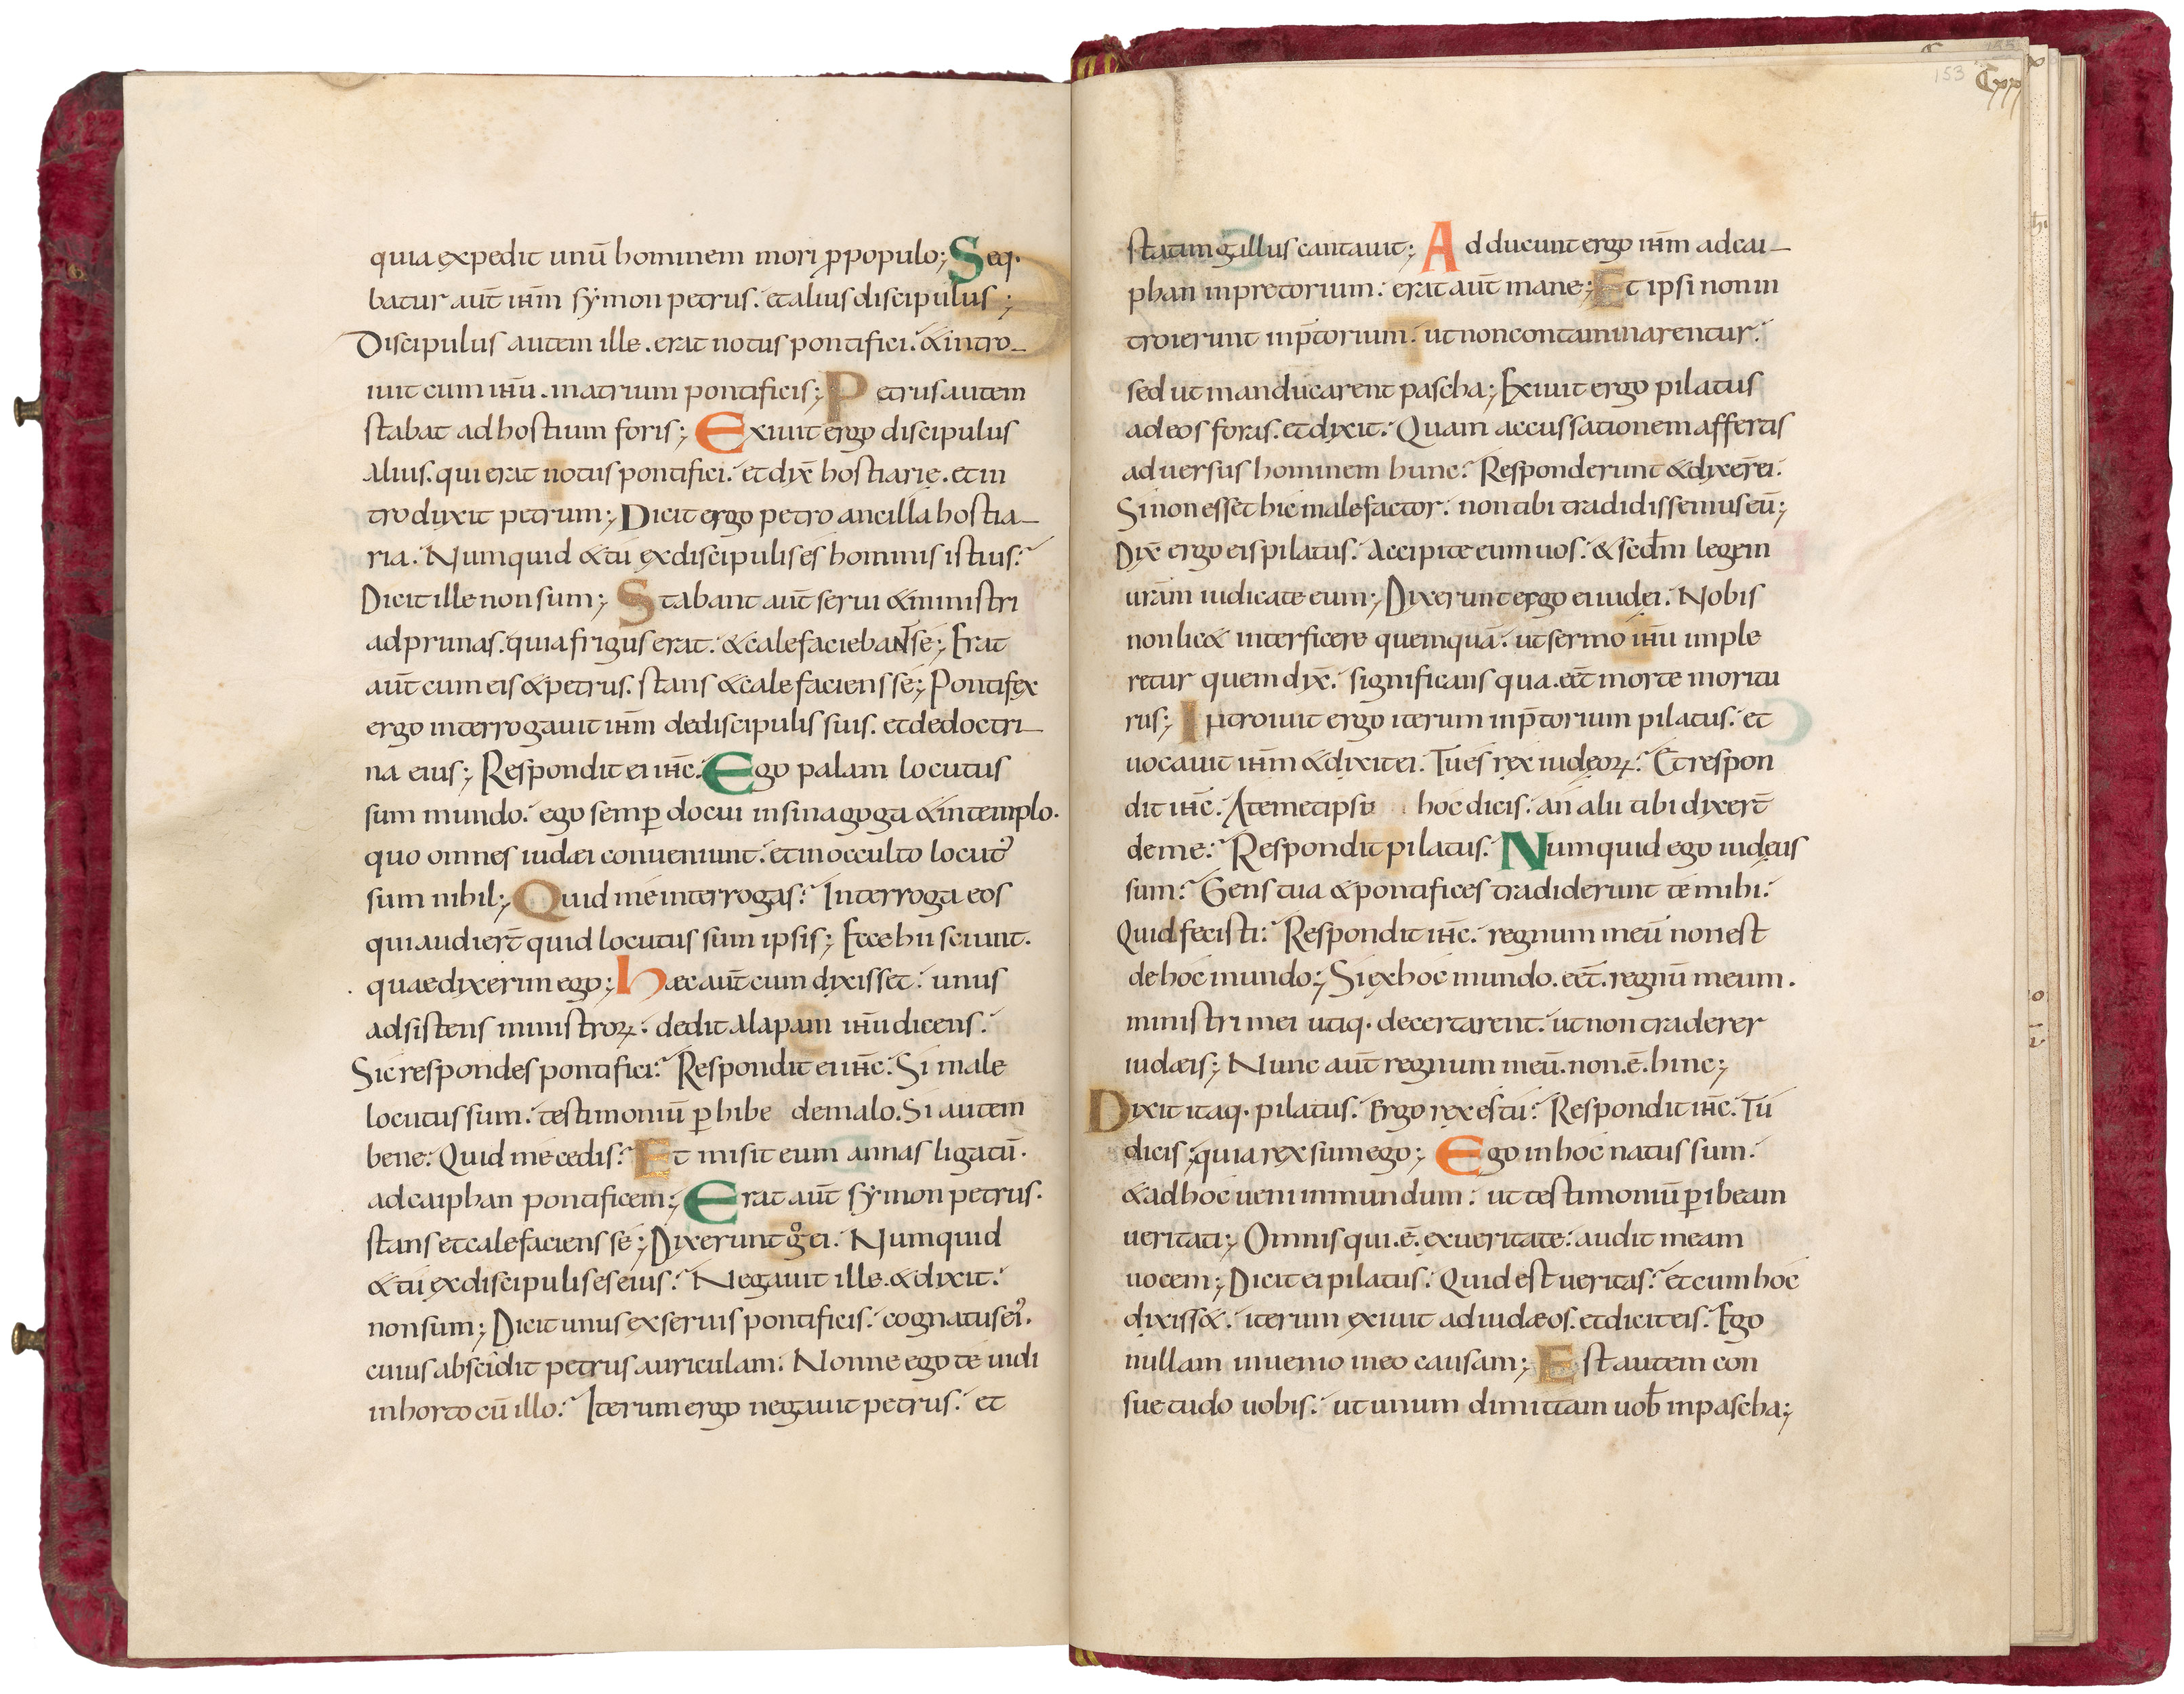 quia expedit unū hominem mori ꝓpopulo; Seq·
batur aut̄ ih̄m sẏmon petrus. et alius discipulus;
Discipulus autem ille. erat notus pontifici. & intro-
iuit cum ih̄u. in atrium pontificis; Petrus autem
stabat ad hostium foris; Exiuit ergo discipulus
alius. qui erat notus pontifici. et dix̄ hostiarię. et in
trodixit petrum; Dicit ergo petro ancilla hostia-
ria. Numquid & tú ex discipulis és hominis istius?
Dicit ille non sum; Stabant aut̄ serui & ministri
ad prunas. quia frigus erat. & calefaciebant sé; Erat
aut̄ cum eis & petrus. stans & calefaciens sé; Pontifex
ergo interrogauit ih̄m de discipulis suis. et de doctri-
na eius; Respondit ei ih̄c. Ego palam locutus
sum mundo. ego semꝑ docui in sinagoga & in templo.
quo omnes iudæi conueniunt. et in occulto locut᾽
sum nihil; Quid mé interrogas? Interroga eos
qui audier̄t quid locutus sum ipsis; Ecce hii sciunt.
quae dixerim ego; Haec aut̄ cum dixisset. unus
adsistens ministroꝝ. dedit alapam ih̄u dicens.
Sic respondes pontifici? Respondit ei ih̄c. Si male
locutus sum. testimoniū ꝑhibe de malo. Si autem
bene. Quid mé cedis? Et misit eum annas ligatū.
ad caiphan pontificem; Erat aut̄ sẏmon petrus.
stans et calefaciens sé; Dixerunt g̊ ei. Numquid
& tú ex discipulis es eius? Negauit ille. & dixit.
non sum; Dicit unus ex seruis pontificis. cognatus ei᾽.
cuius abscidit petrus auriculam. Nonne ego te uidi
in horto cū illo? Iterum ergo negauit petrus. et
153
Cxx
statim gallus cantauit; Adducunt ergo ih̄m ad cai-
phan in pretorium. erat aut̄ mane; Et ipsi non in
troierunt in p̄torium. ut non contaminarentur.
sed ut manducarent pascha; Exiuit ergo pilatus
ad eos foras. et dixit. Quam accussationem affertis
aduersus hominem hunc? Responderunt & dixer̄ ei.
Si non esset hic malefactor. non tibi tradidissemus eū;
Dix̄ ergo eis pilatus. Accipite eum uos. & scd̄m legem
uram̄ iudicate eum; Dixerunt ergo ei iudei. Nobis
non lic& interficere quemquā. ut sermo ih̄u imple
retur quem dix̄. significans qua .eēt morte moritu
rus; Introiuit ergo iterum in p̄torium pilatus. et
uocauit ih̄m & dixit ei. Tú es rex iudęoꝝ? Et respon
dit ih̄c. A temetipso hoc dicis. án alii tibi dixer̄t
de me? Respondit pilatus. Numquid ego iudęus
sum? Gens tua & pontifices tradiderunt té mihi.
Quid fecisti? Respondit ih̄c. regnum meū non est
de hoc mundo; Si ex hoc mundo. eēt. regnū meum.
ministri mei utiq· decertarent. ut non traderer
iudæis; Nunc aut̄ regnum meū. non .ē. hinc;
Dixit itaq· pilatus. Ergo rex es tú? Respondit ih̄c. Tú
dicis; quia rex sum ego; Ego in hoc natus sum.
& ad hoc ueni in mundum. ut testimoniū ꝑibeam
ueritati; Omnis qui .ē. ex ueritate. audit meam
uocem; Dicit ei pilatus. Quid est ueritas? et cum hoc
dixiss&. iterum exiuit ad iudæos. et dicit eis. Ego
nullam inuenio in eo causam; Est autem con
suetudo uobis. ut unum dimittam uob̄ in pascha;